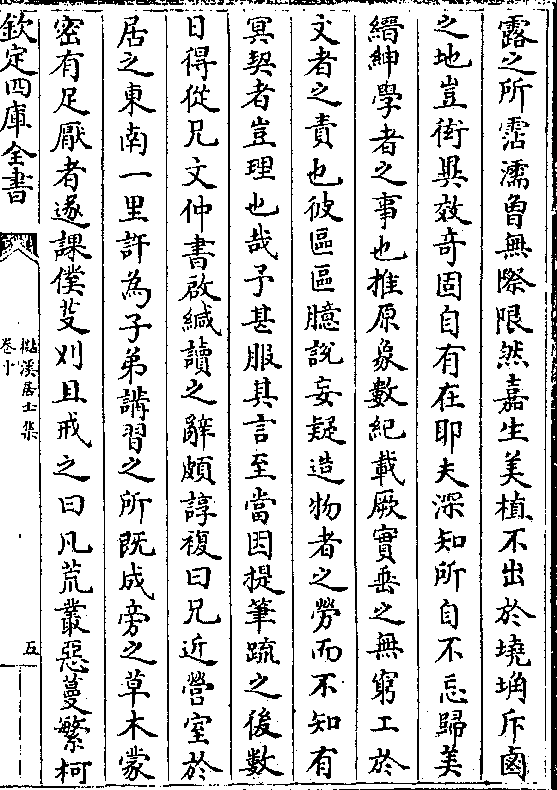 露之所霑濡魯無際限然嘉生美植不出於墝埆斥鹵
之地豈術異效奇固自有在耶夫深知所自不忘歸美
縉紳學者之事也推原象數紀載厥實垂之無窮工於
文者之責也彼區區臆說妄疑造物者之勞而不知有
冥契者豈理也哉予甚服其言至當因提筆疏之後數
日得從兄文仲書啟緘讀之辭頗諄複曰兄近營室於
居之東南一里許為子弟講習之所既成旁之草木蒙
密有足厭者遂課僕芟刈且戒之曰凡荒叢惡蔓繁柯
欽定四庫全書
檆溪居士集
卷十
五